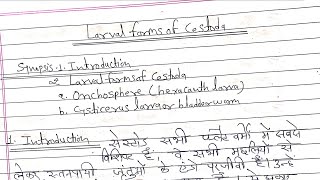 Larval forms of Cestoda
Synopsis :1. Introduction
2. Larval forms of Cestoda
a. Onchosphere (hexacanth larva)
b. Cysticerus larva or bladderworm
1. Introduction सेस्टोड सभी प्लेट वर्मो में सबसे
विशिष्ट हैं। वे सभी मछलियों से
लेकर स्तनपायी जंतुओं के परजीवी हैं। उनके